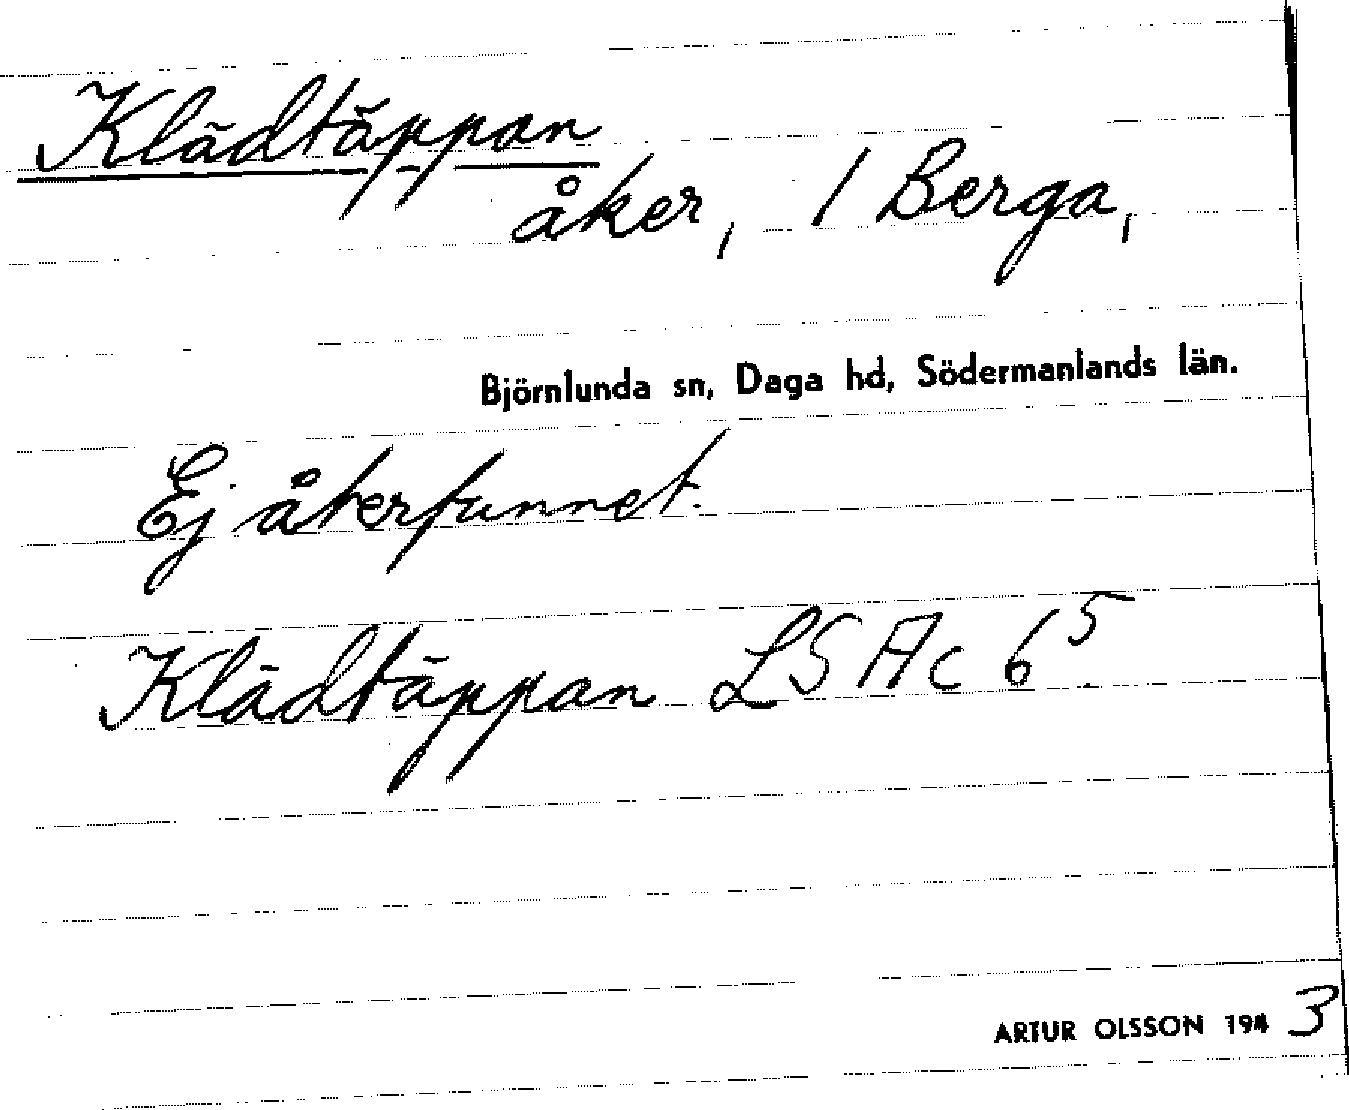 Klädtäppan
åker, / Berga,
Björnlunda sn, Daga hd, Södermanlands län.
Ej återfunnet.
Klädtäppan LS Ac 6⁵
ARTUR OLSSON 1943